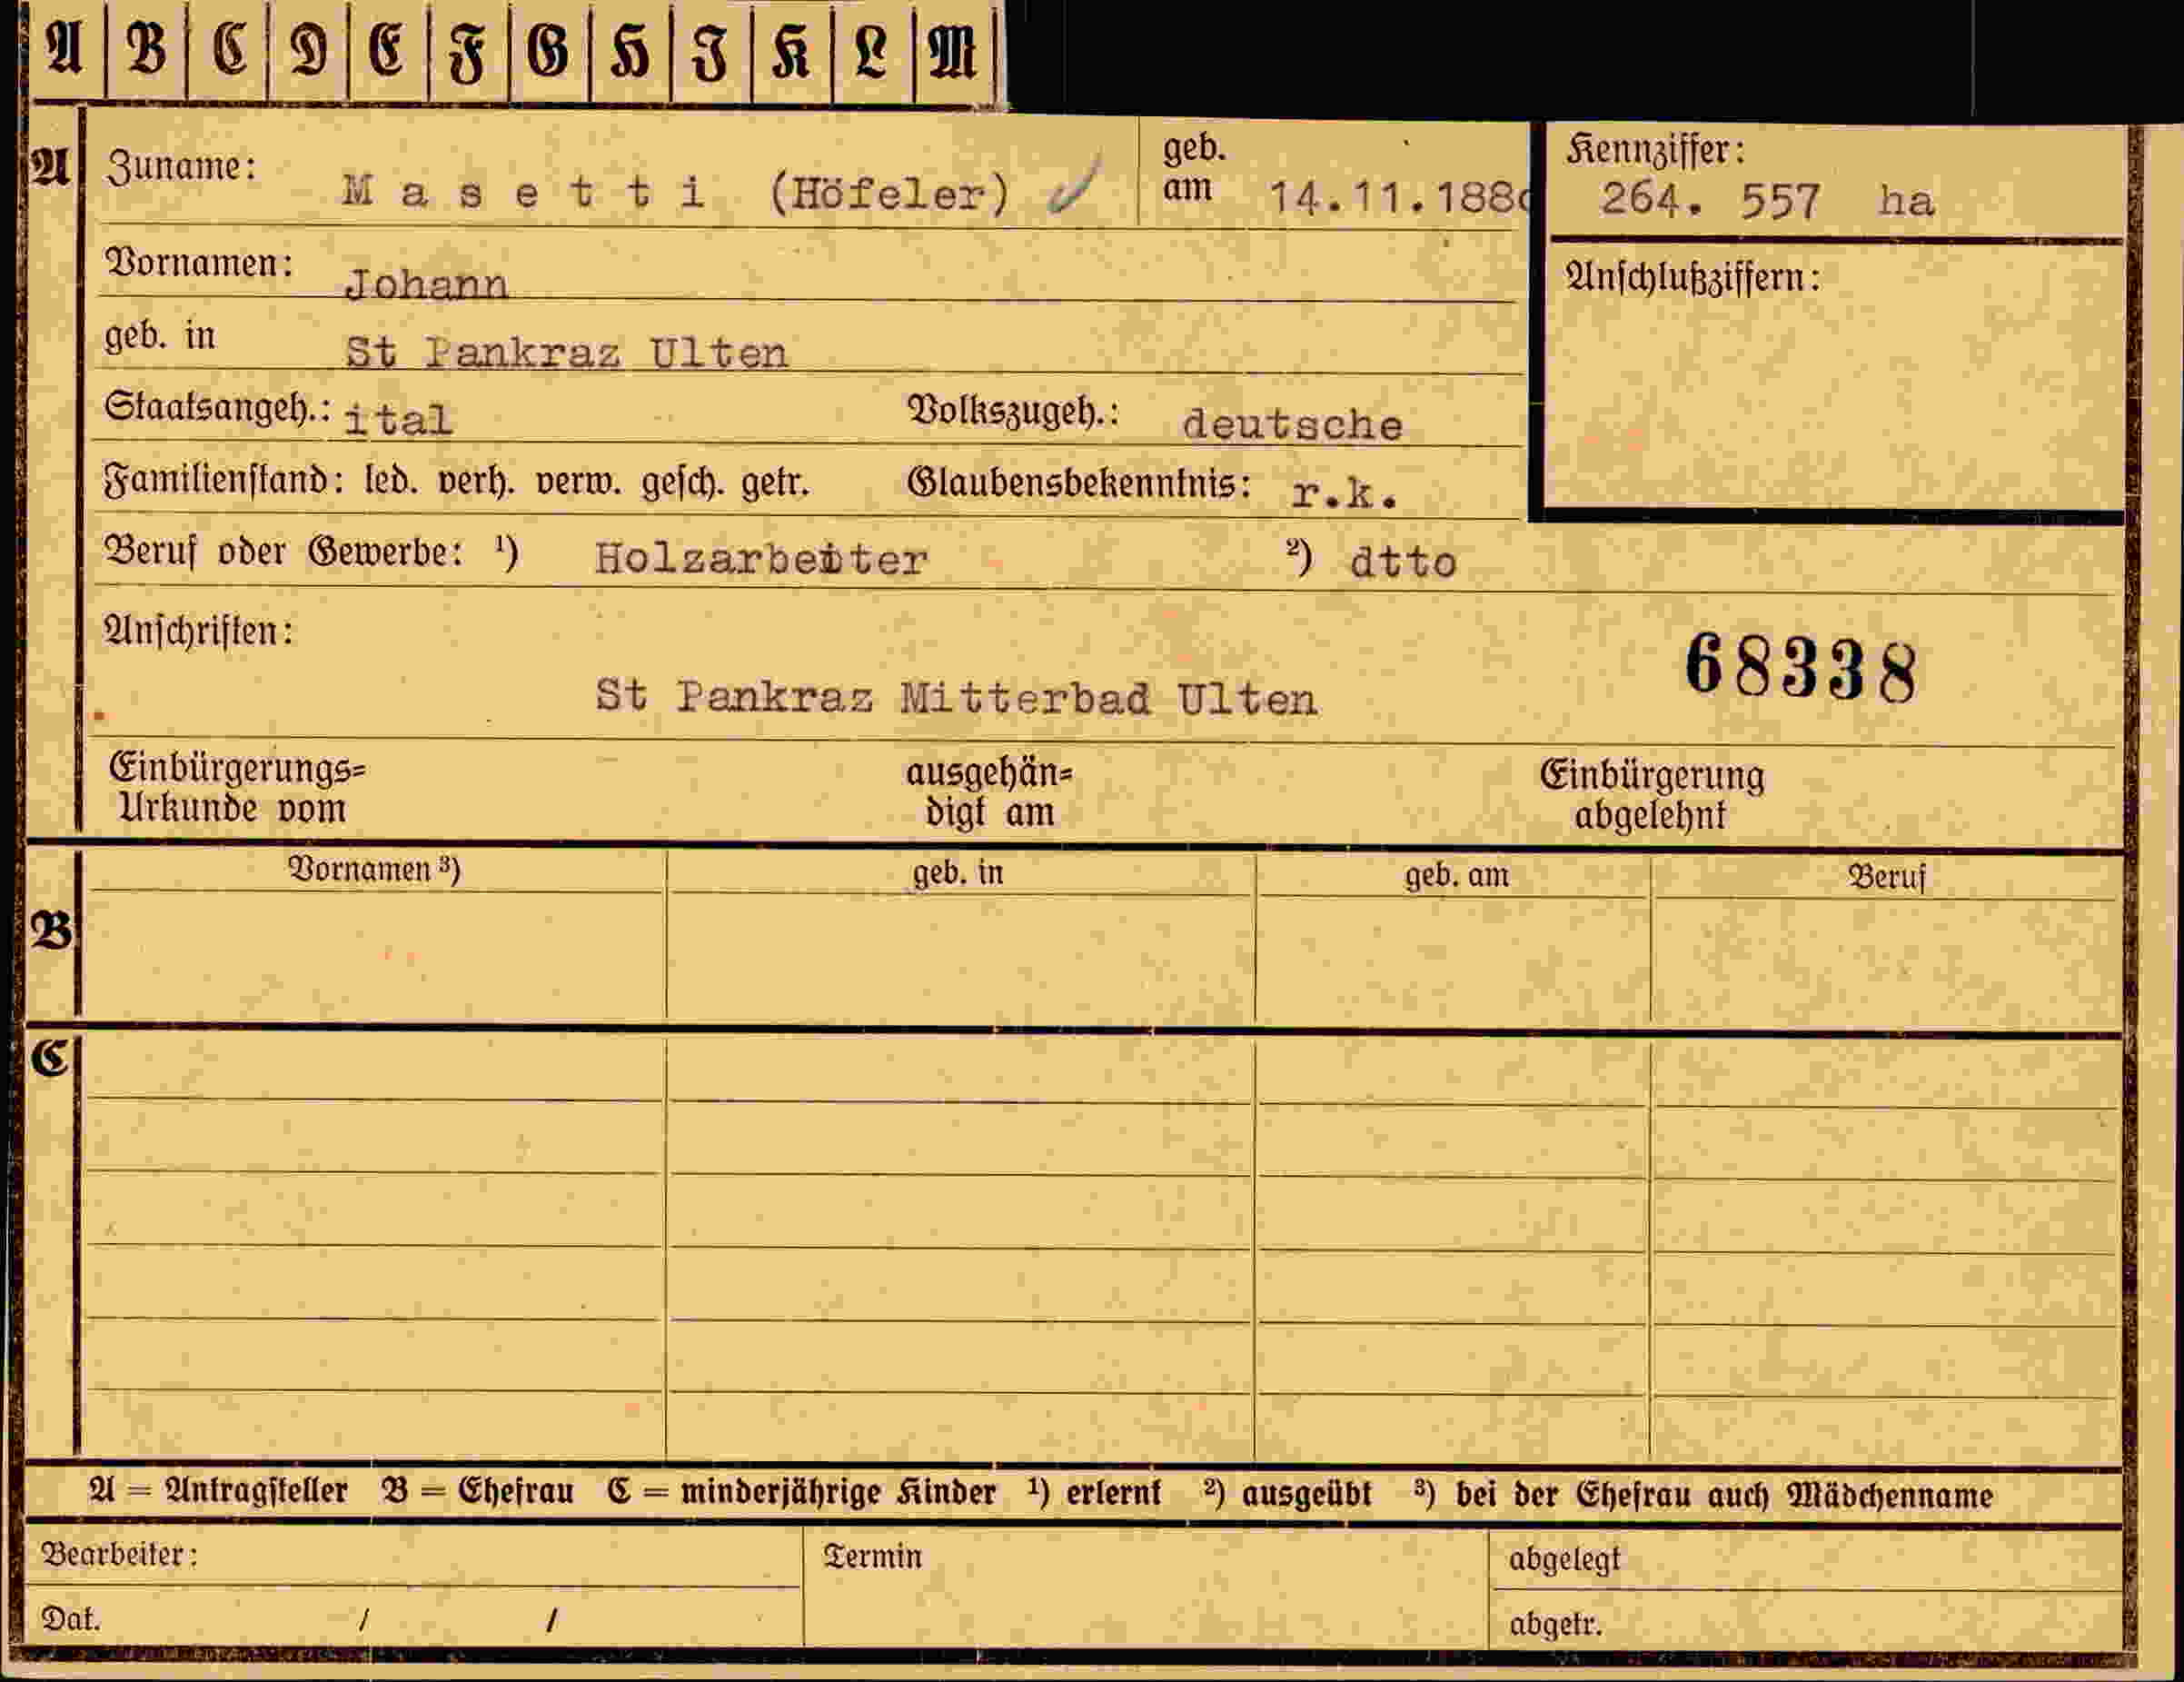 A B C D E F G H I K L M
A Zuname: Masetti (Höfeler) geb. am Kennziffer: 264. 557 ha
Vornamen: Johann
Anschlußziffern:
geb. in St Pankraz Ulten
Staatsangeh.: ital Volkszugeh.: deutsche
Familienstand: led. verh. verw. gesch. getr. Glaubensbekenntnis: r.k.
Beruf oder Gewerbe: ¹) Holzarbeiter ²) dtto
Anschriften:
68338
St Pankraz Mitterbad Ulten
Einbürgerungs= ausgehän= Einbürgerung
Urkunde vom digt am abgelehnt
Vornamen ³) geb. in geb. am Beruf
B
C
A = Antragsteller B = Ehefrau C = minderjährige Kinder ¹) erlernt ²) ausgeübt ³) bei der Ehefrau auch Mädchenname
Bearbeiter: Termin abgelegt
Dat. / / abgetr.